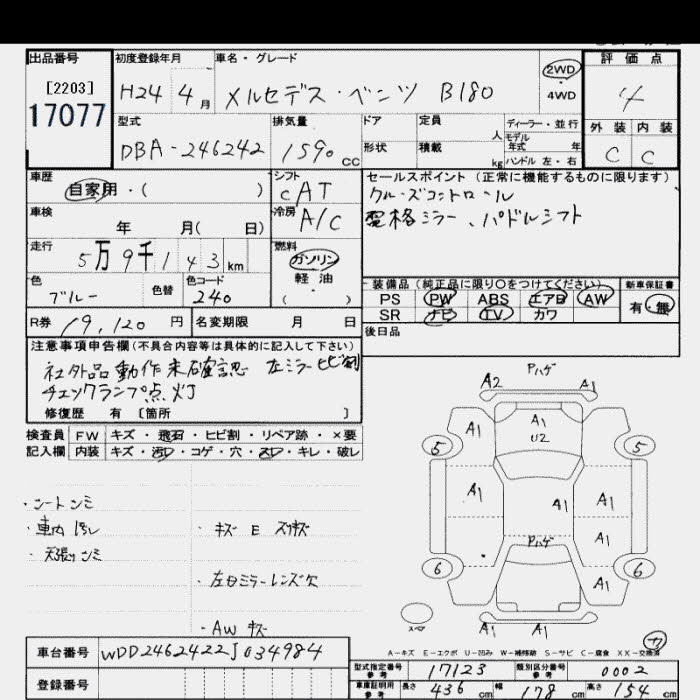 出品番号 初度登録年月 車名・グレード 評価点
[2203] 17077 H24年 4月 メルセデス・ベンツ B180 2WD ・ 4WD 4
型式 排気量 ドア 定員 人 ディーラー・並行 外装 内装
DBA-246242 1590 cc 形状 積載 kg モデル年式 年 ハンドル 左・右 C C
車歴 自家用・( ) シフト CAT セールスポイント (正常に機能するものに限ります)
クルーズコントロール
車検 年 月( 日) 冷房 A/C 電格ミラー、パドルシフト
走行 5万9千143km 燃料 ガソリン 軽油 ( )
色 ブルー 色替 色コード 240
装備品 (純正品に限り○をつけてください) 新車保証書
PS PW ABS エアB AW 有・無
SR ナビ TV カワ
R券 19,120円 名変期限 月 日 後日品
注意事項申告欄 (不具合内容等は具体的に記入して下さい)
社外品動作未確認 左ミラーヒビ割
チェックランプ点灯
修復歴 有 [箇所 ]
検査員 FW キズ・飛石・ヒビ割・リペア跡・×要
記入欄 内装 キズ・汚れ・コゲ・穴・スレ・キレ・破レ
Pハゲ
A2 A1
A1 A1 U2
5 5
A1 A1 A1
Pハゲ A1
6 6
A1
A1 A1
・シートシミ
・車内汚れ ・キズ E スリキズ
・天張シミ
・左ミラーレンズ欠
・AW キズ
スペア
A-キズ E-エクボ U-凹み W-補修跡 S-サビ C-腐食 XX-交換済
車台番号 WDD2462422J034984
登録番号
型式指定番号 参考 17123 類別区分番号 参考 0002
車庫証明用 参考 長さ 436 cm 幅 178 cm 高さ 154 cm